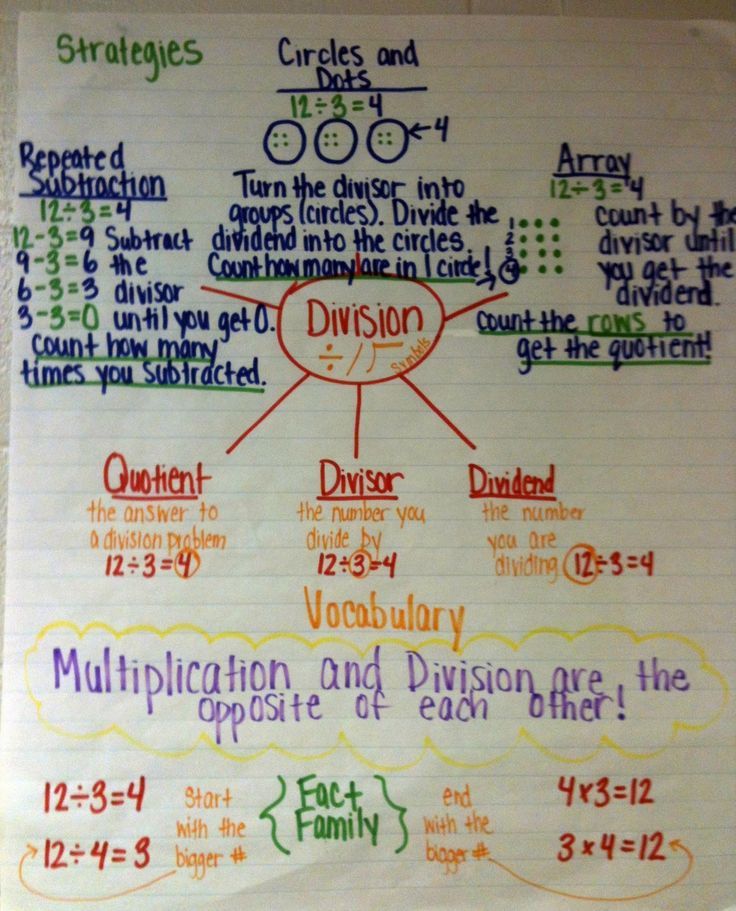 Strategies
Circles and
Dots
12÷3=4
←4
Turn the divisor into
groups (circles). Divide the
dividend into the circles.
Count how many are in 1 circle!
Repeated
Subtraction
12÷3=4
12-3=9 Subtract
9-3=6 the
6-3=3 divisor
3-3=0 until you get 0.
count how many
times you subtracted.
Array
12÷3=4
1
2
3
4
count by the
divisor until
you get the
dividend.
count the rows to
get the quotient!
Division
÷ /
Symbols
Quotient
the answer to
a division problem
12÷3=4
Divisor
the number you
divide by
12÷3=4
Dividend
the number
you are
dividing 12÷3=4
Vocabulary
Multiplication and Division are the
opposite of each other!
12÷3=4
12÷4=3
Start
with the
bigger #
{Fact
Family}
end
with the
bigger #
4x3=12
3x4=12